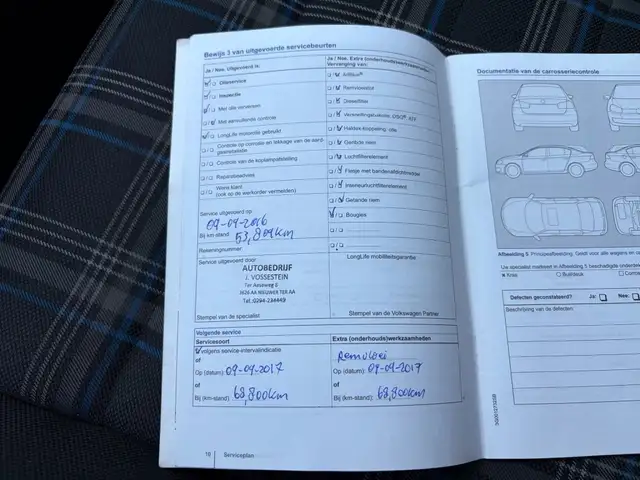 Bewijs 3 van uitgevoerde servicebeurten
Ja / Nee. Uitgevoerd is:
Olieservice
Inspectie
Met olie verversen
Met aanvullende controle
LongLife motorolie gebruikt
Controle op corrosie en lekkage van de aardgasinstallatie
Controle van de koplampafstelling
Reparatieadvies
Wens klant
(ook op de werkorder vermelden)
Service uitgevoerd op:
09-09-2016
Bij km-stand: 53,809km
Rekeningnummer:
Service uitgevoerd door:
AUTOBEDRIJF
J. VOSSESTEIN
Ter Aaseweg 6
3626 AA NIEUWER TER AA
Tel.:0294-234449
Stempel van de specialist
Ja / Nee. Extra (onderhouds)werkzaamheden
Vervanging van:
AdBlue®
Remvloeistof
Dieselfilter
Haldex-koppeling: olie
Getande riem
Luchtfilterelement
Flesje met bandenafdichtmiddel
Interieurluchtfilterelement
Getande riem
Bougies
LongLife mobiliteitsgarantie
Stempel van de Volkswagen Partner
Volgende service
Servicesoort
volgens service-intervalindicatie
of
Op (datum): 09-09-2017
of
Bij (km-stand): 68,800km
Extra (onderhouds)werkzaamheden
Remvloei
Op (datum): 09-09-2017
of
Bij (km-stand): 68,800km
10 Serviceplan
Documentatie van de carrosseriecontrole
Afbeelding 5 Principeafbeelding. Geldt voor alle wagens en
Uw specialist markeert in Afbeelding 5 beschadigde onderde
Buil/deuk
Defecten geconstateerd? Ja: Nee:
Beschrijving van de defecten: